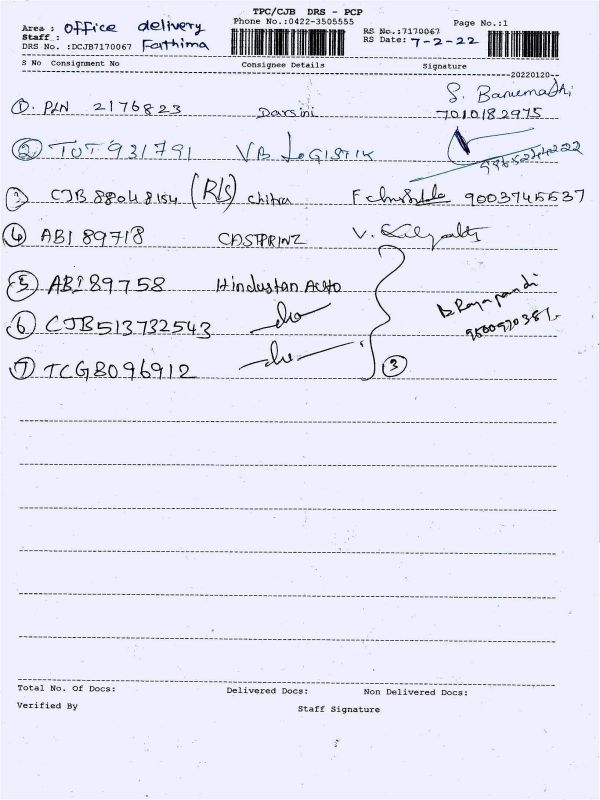 TPC/CJB DRS - PCP
Area : office delivery Phone No.:0422-3505555 Page No.:1
Staff : RS No.:7170067
DRS No. :DCJB7170067 Faithima RS Date: 7-2-22
S No Consignment No Consignee Details Signature
20220120
S. Banumathi
1. PLN 2176823 Darsini 7010182975
2 TUT 931791 VB LOGISTIK
3 CJB 88048154 (R/s) Chitra 9003745537
4 ABI 89718 CASTPRINZ V.
5 ABI 89758 Hindustan Auto
6 CJB513732543 -do-
7 TCGB096912 -do- 3
Total No. Of Docs: Delivered Docs: Non Delivered Docs:
Verified By Staff Signature